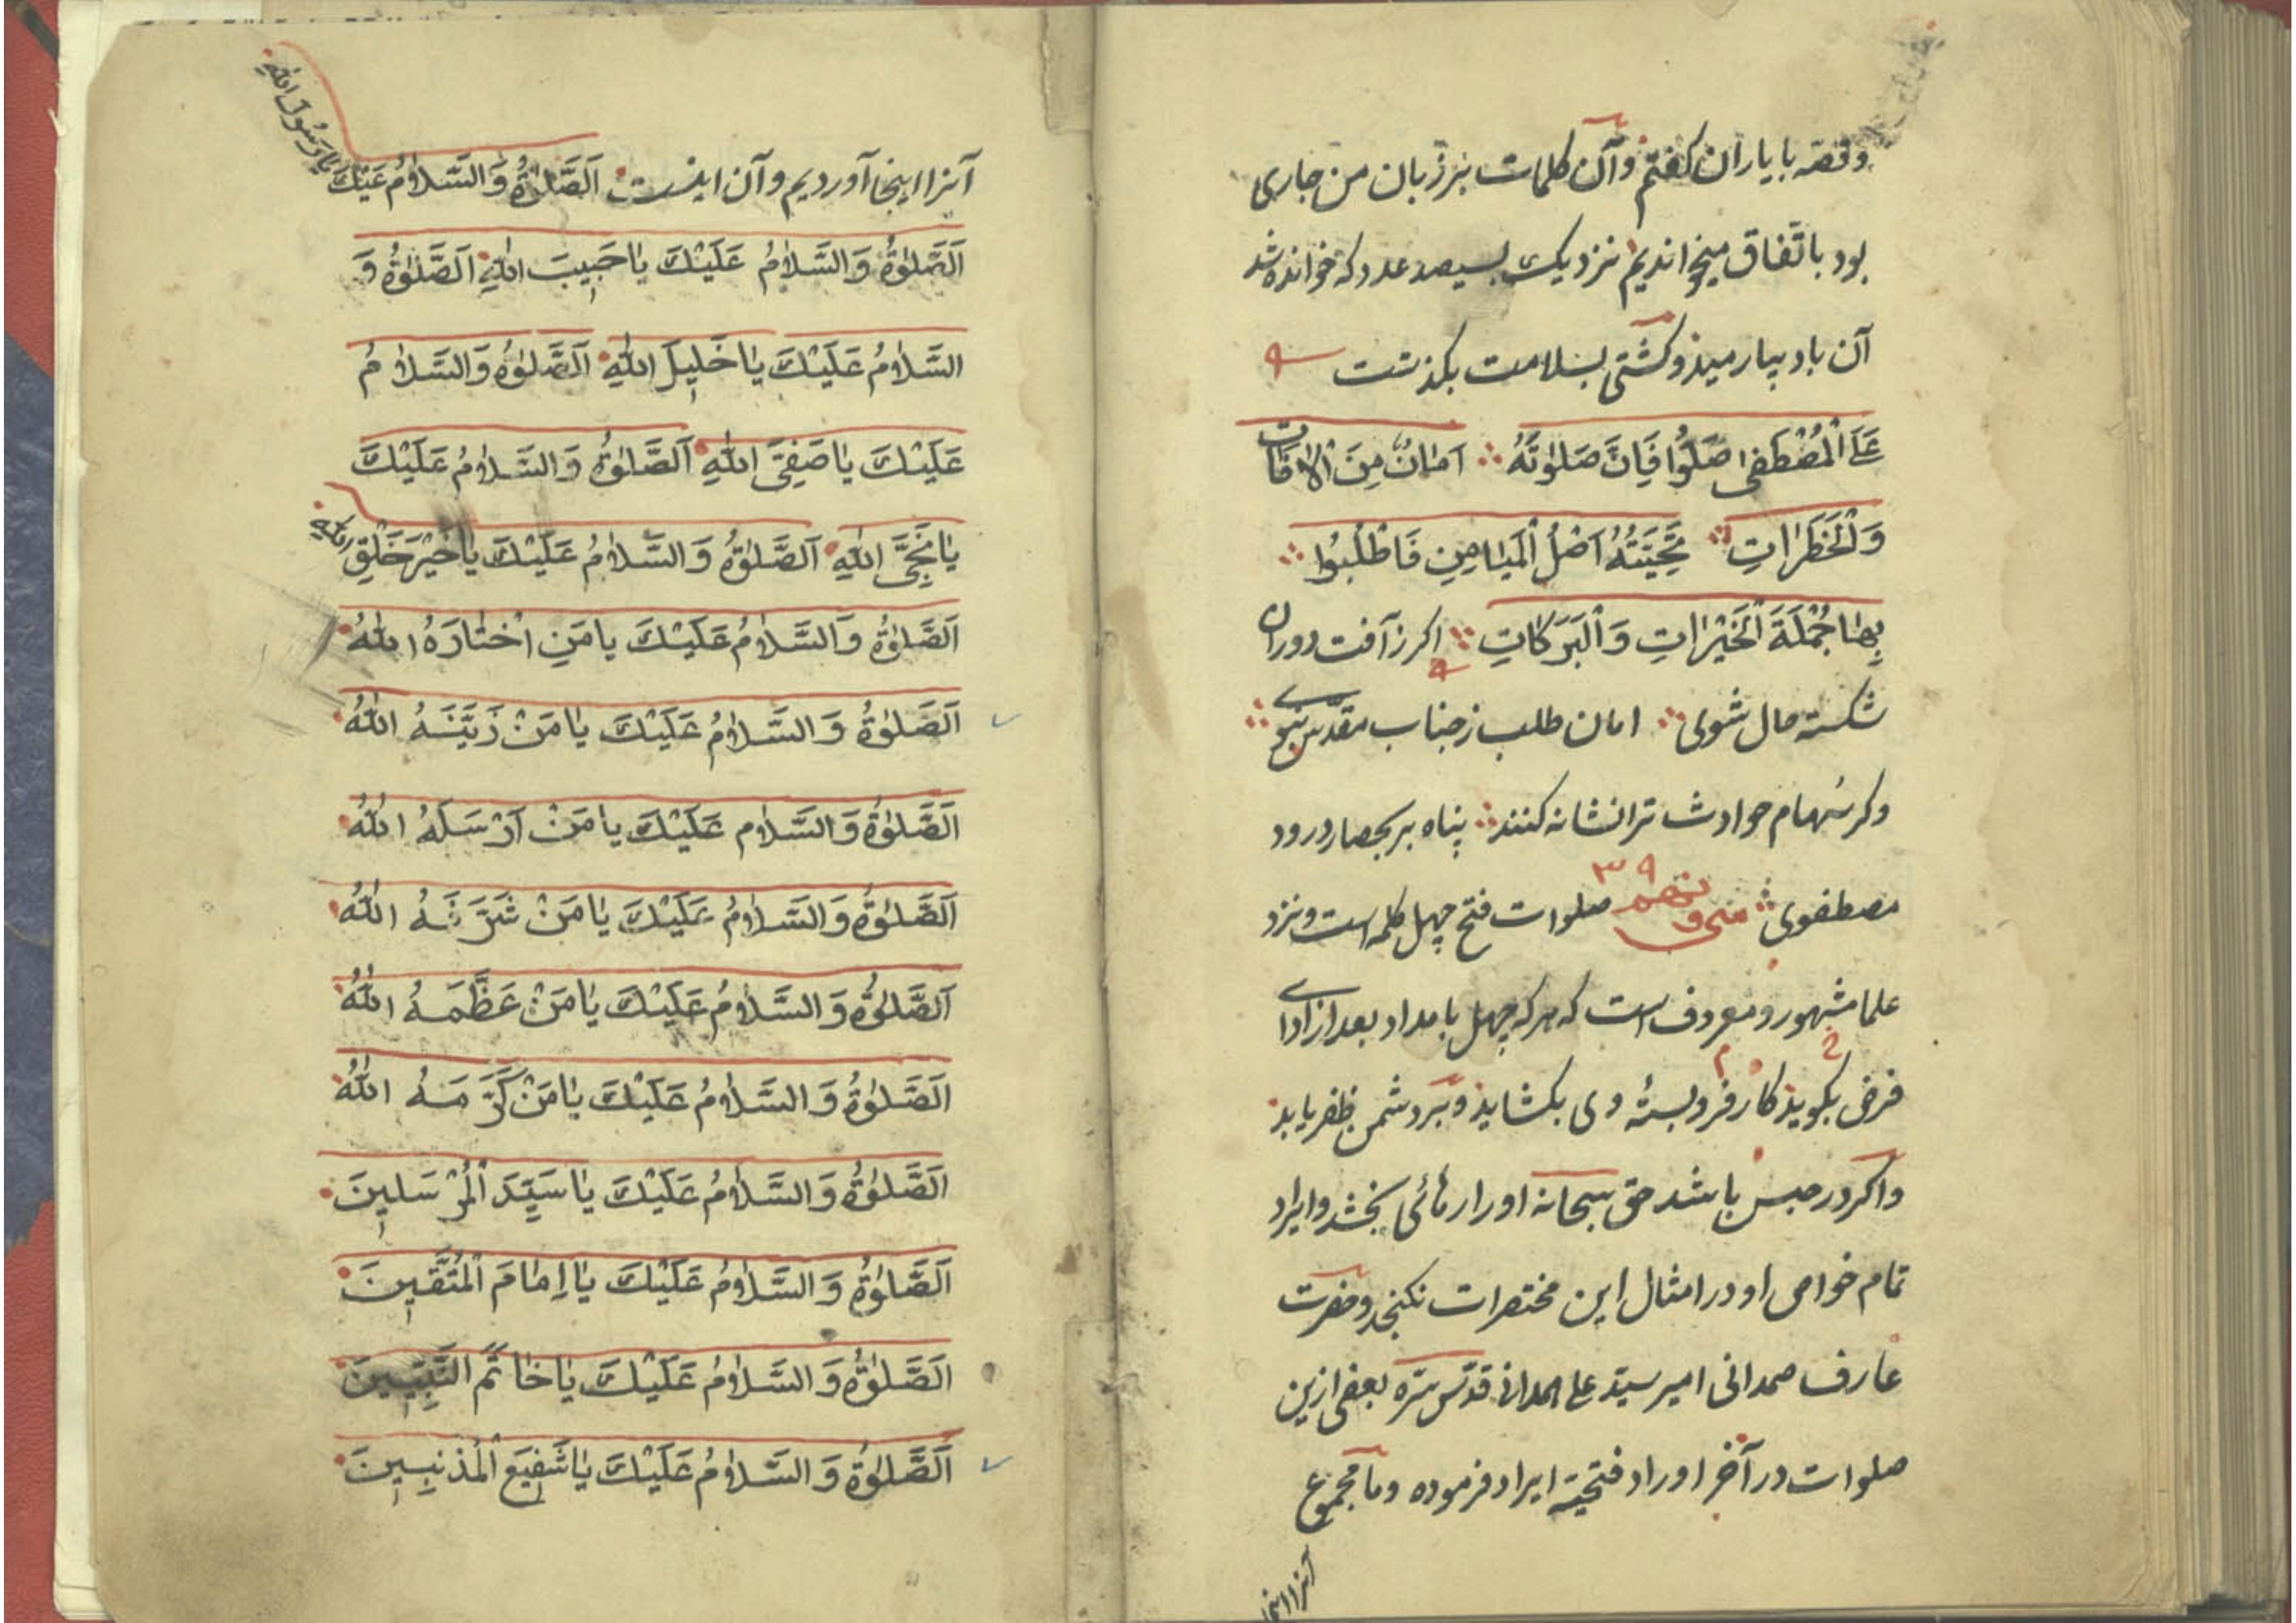 وقصه با یاران کفتم وآن کلمات بر زبان من جاری
بود باتفاق میخواندیم نزدیک بسیصد عدد که خوانده شد
آن باد بیارمید وکشتی بسلامت بکذشت
عَلَى الْمُصْطَفٰى صَلُّوا فَاِنَّ صَلٰوتَهُ امٰانٌ مِنَ الْاٰفاٰتِ
وَالْخَطَرٰاتِ تَحِيَّتُهُ اَصْلُ الْمَيٰامِنِ فَاطْلُبُوا
بِهٰا جُمْلَةَ الْخَيْرٰاتِ وَالْبَرَكٰاتِ اکر زآفت دوران
شکسته حال شوی امان طلب زجناب مقدس نبوی
وکر سهام حوادث ترا نشانه کنند پناه بر بحصار درود
مصطفوی ۳۹ صلوات فتح چهل کلمه است ونزد
علما مشهور و معروف است که هرکه چهل بامداد بعد از ادای
فرض بکوید کار فروبستهٔ وی بکشاید وبر دشمن ظفر یابد
واکر در حبس باشد حق سبحانه اورا رهائی بخشد وایراد
تمام خواص او در امثال این مختصرات نکنجد وحضرت
عارف صمدانی امیر سید علی همدانی قدس سره بعضی ازین
صلوات در آخر اوراد فتحیه ایراد فرموده وما مجموع
آنرا اینجا
آنرا اینجا آوردیم وآن اینست اَلصَّلٰوةُ وَالسَّلاٰمُ عَلَيْكَ يٰا رَسُولَ اللّٰهِ
اَلصَّلٰوةُ وَالسَّلاٰمُ عَلَيْكَ يٰا حَبِيبَ اللّٰهِ اَلصَّلٰوةُ وَ
السَّلاٰمُ عَلَيْكَ يٰا خَلِيلَ اللّٰهِ اَلصَّلٰوةُ وَالسَّلاٰمُ
عَلَيْكَ يٰا صَفِىَّ اللّٰهِ اَلصَّلٰوةُ وَالسَّلاٰمُ عَلَيْكَ
يٰا نَجِىَّ اللّٰهِ اَلصَّلٰوةُ وَالسَّلاٰمُ عَلَيْكَ يٰا خَيْرَ خَلْقِ اللّٰهِ
اَلصَّلٰوةُ وَالسَّلاٰمُ عَلَيْكَ يٰا مَنِ اخْتٰارَهُ اللّٰهُ
اَلصَّلٰوةُ وَالسَّلاٰمُ عَلَيْكَ يٰا مَنْ زَيَّنَهُ اللّٰهُ
اَلصَّلٰوةُ وَالسَّلاٰم عَلَيْكَ يٰا مَنْ اَرْسَلَهُ اللّٰهُ
اَلصَّلٰوةُ وَالسَّلاٰمُ عَلَيْكَ يٰا مَنْ شَرَّفَهُ اللّٰهُ
اَلصَّلٰوةُ وَالسَّلاٰمُ عَلَيْكَ يٰا مَنْ عَظَّمَهُ اللّٰهُ
اَلصَّلٰوةُ وَالسَّلاٰمُ عَلَيْكَ يٰا مَنْ كَرَّمَهُ اللّٰهُ
اَلصَّلٰوةُ وَالسَّلاٰمُ عَلَيْكَ يٰا سَيِّدَ الْمُرْسَلِينَ
اَلصَّلٰوةُ وَالسَّلاٰمُ عَلَيْكَ يٰا اِمٰامَ الْمُتَّقِينَ
اَلصَّلٰوةُ وَالسَّلاٰمُ عَلَيْكَ يٰا خٰاتَمَ النَّبِيِّينَ
اَلصَّلٰوةُ وَالسَّلاٰمُ عَلَيْكَ يٰا شَفِيعَ الْمُذْنِبِينَ